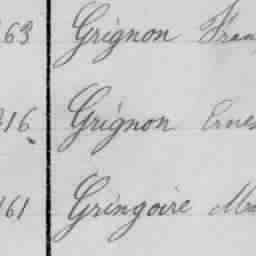 63 Grignon Fran
316 Grignon Ernes
161 Gringoire Ma